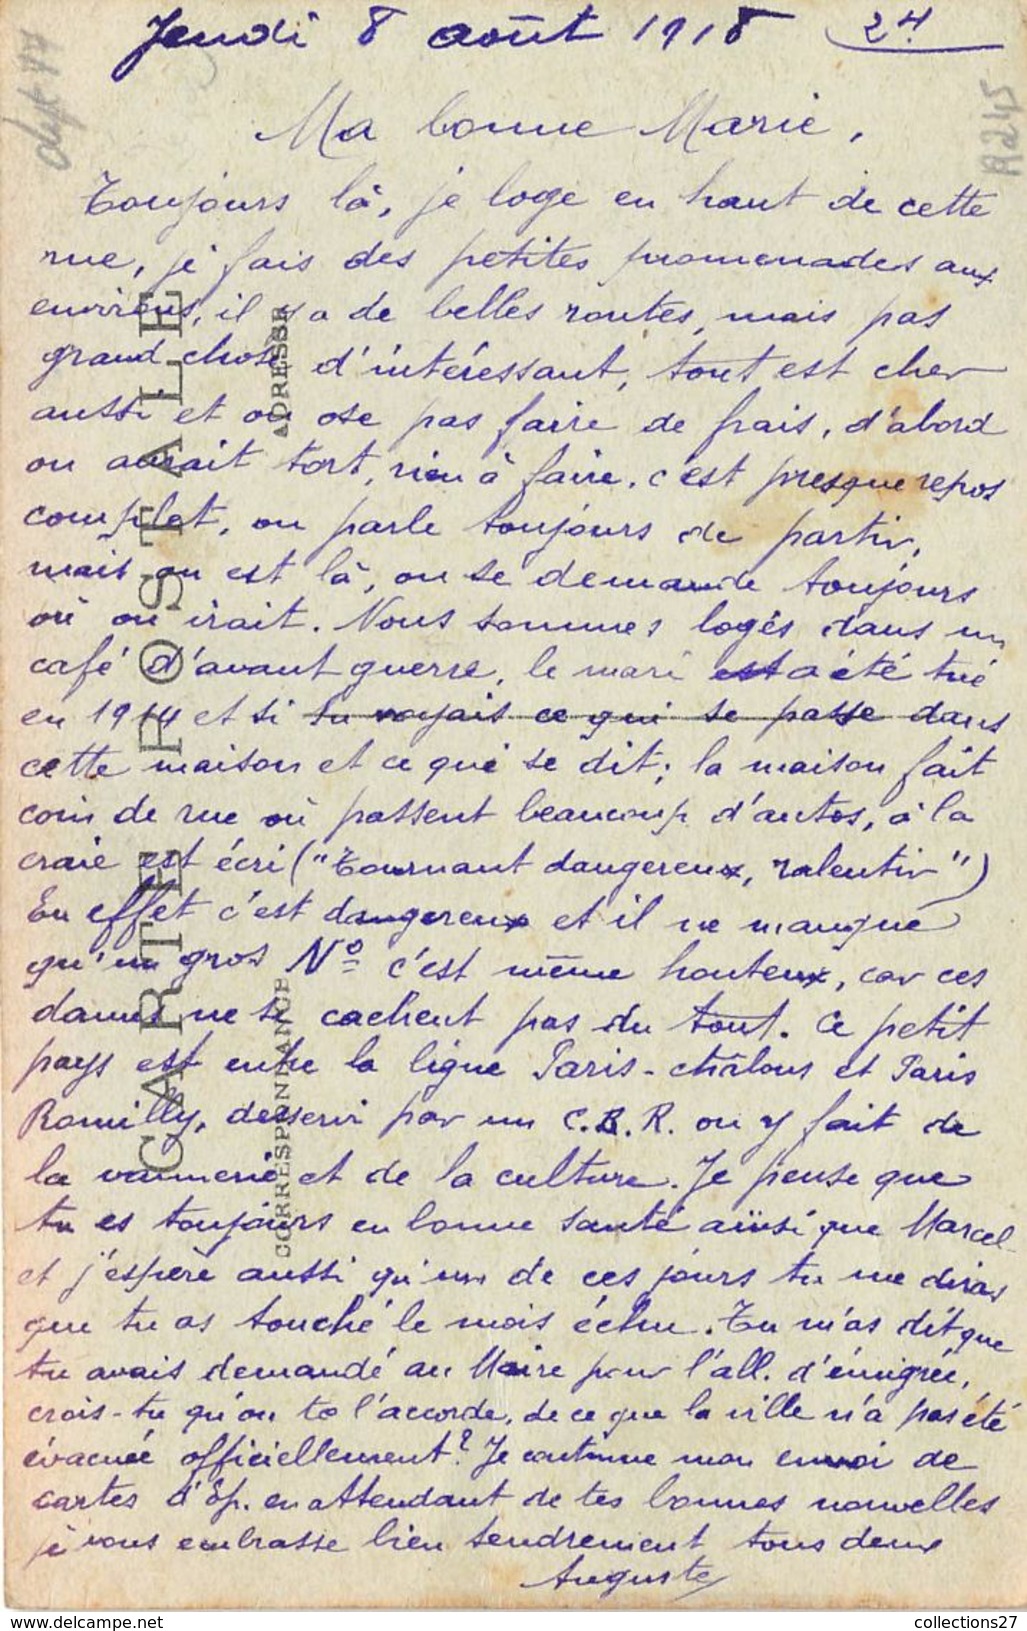 Jeudi 8 août 1918 24
Ma bonne Marie,
Toujours là, je loge en haut de cette
rue, je fais des petites promenades aux
environs, il y a de belles routes, mais pas
grand chose d'intéressant, tout est cher
aussi et on ose pas faire de frais, d'abord
on aurait tort, rien à faire. c'est presque repos
complet, on parle toujours de partir,
mais on est là, on se demande toujours
où on irait. Nous sommes logés dans un
café d'avant guerre, le mari est a été tué
en 1914 et si tu voyais ce qui se passe dans
cette maison et ce qui se dit; la maison fait
coin de rue où passent beaucoup d'autos, à la
craie est écri ("Tournant dangereux, ralentir")
En effet c'est dangereux et il ne manque
qu'un gros No c'est même honteux, car ces
dames ne se cachent pas du tout. Ce petit
pays est entre la ligne Paris-châlons et Paris
Romilly, desservi par un C.B.R. on y fait de
la vannerie et de la culture. Je pense que
tu es toujours en bonne santé ainsi que Marcel
et j'espère aussi qu'un de ces jours tu me diras
que tu as touché le mois échu. Tu m'as dit que
tu avais demandé au Maire pour l'all. d'émigrée,
crois-tu qu'on te l'accorde, de ce que la ville n'a pas été
évacuée officiellement? Je continue mon envoi de
cartes d'Ep. en attendant de tes bonnes nouvelles
je vous embrasse bien tendrement tous deux
Auguste
CARTE POSTALE
CORRESPONDANCE
ADRESSE
dept 77
A245
collections27